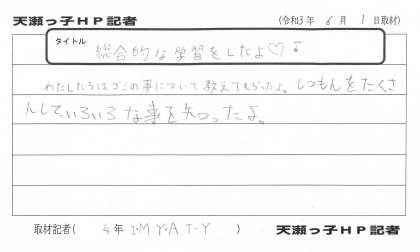 天瀬っ子HP記者 (令和3年 6月 1日取材)
タイトル
総合的な学習をしたよ♡♪
わたしたちはゴミの事について教えてもらったよ。しつもんをたくさ
んして、いろいろな事を知ったよ。
取材記者( 4年 I・M Y・A T・Y ) 天瀬っ子HP記者